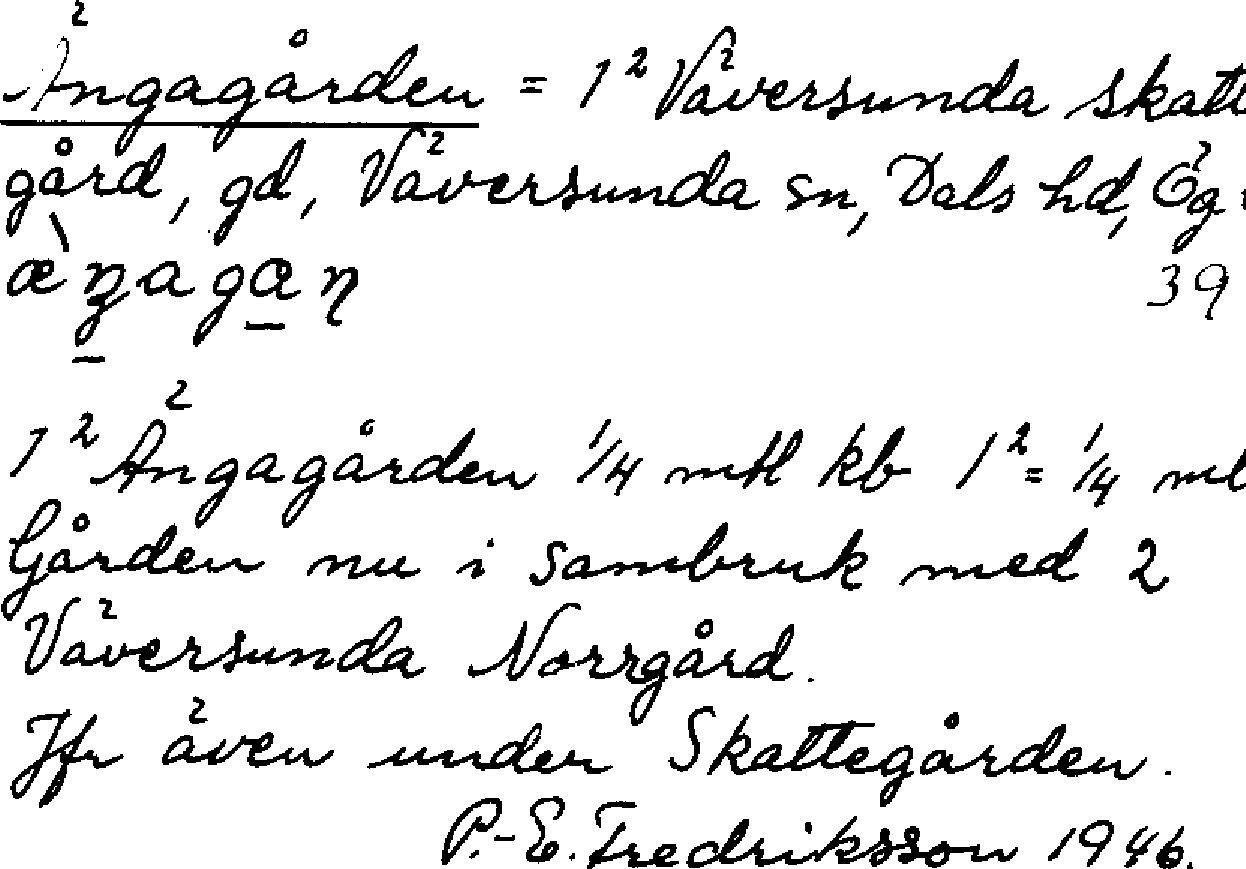 Ängagården = 1² Väversunda skatte
gård, gd, Väversunda sn, Dals hd, Ög
39
1² Ängagården 1/4 mtl kb 1² = 1/4 mtl
Gården nu i sambruk med 2
Väversunda Norrgård.
Jfr även under Skattegården.
P.-E. Fredriksson 1946.